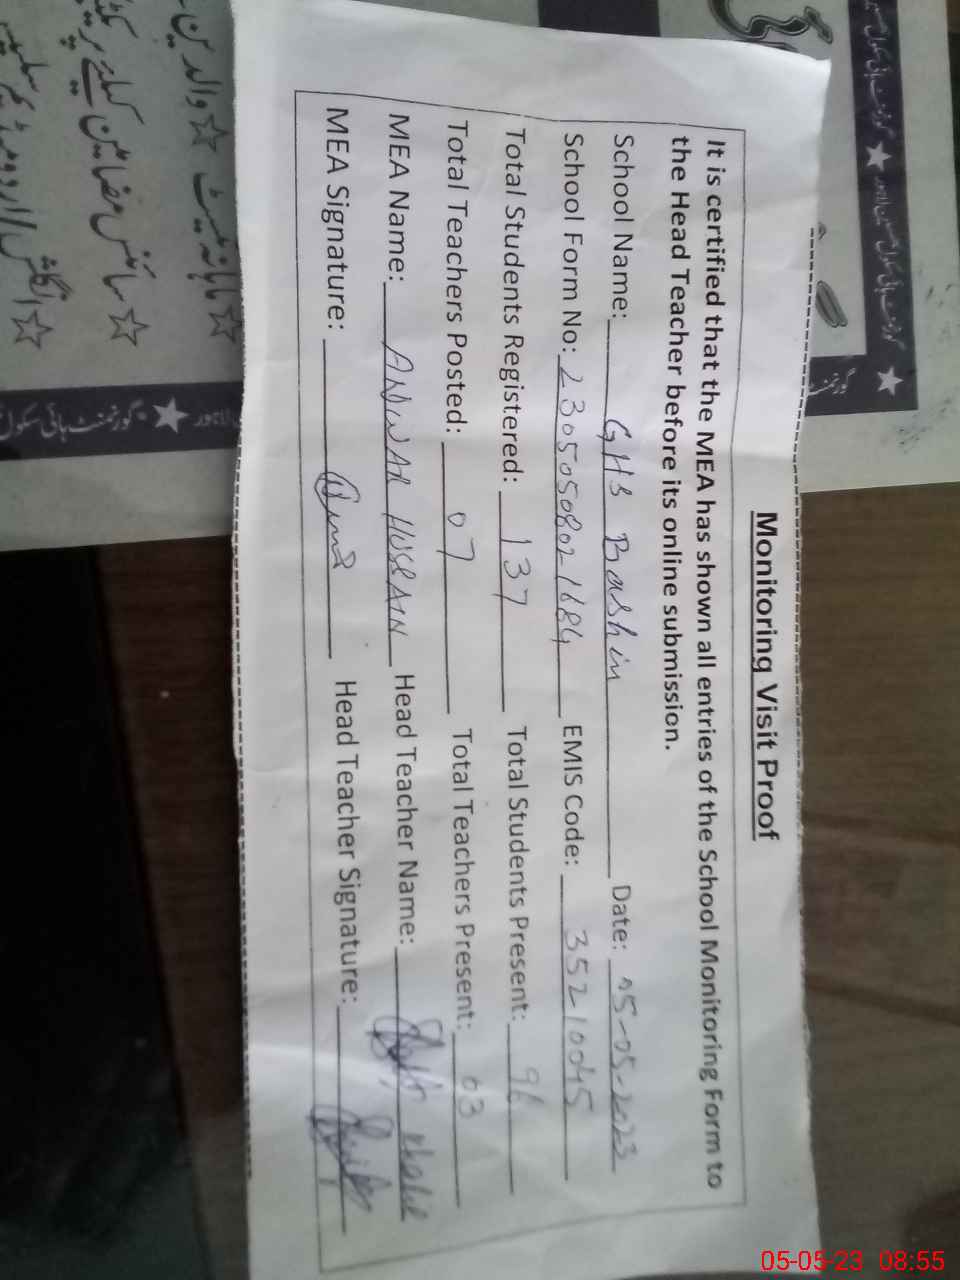 Monitoring Visit Proof
It is certified that the MEA has shown all entries of the School Monitoring Form to
the Head Teacher before its online submission.
School Name: GHS Bashin Date: 05-05-2023
School Form No: 23050508021684 EMIS Code: 35210045
Total Students Registered: 137 Total Students Present: 96
Total Teachers Posted: 07 Total Teachers Present: 03
MEA Name: ANWAR HUSSAIN Head Teacher Name:
MEA Signature: Head Teacher Signature:
☆ ماہانہ ٹیسٹ ☆ والدین
☆ سائنس مضامین کیلئے
☆ انگلش/اردو میڈیم
گورنمنٹ ہائی سکول
05-05-23 08:55